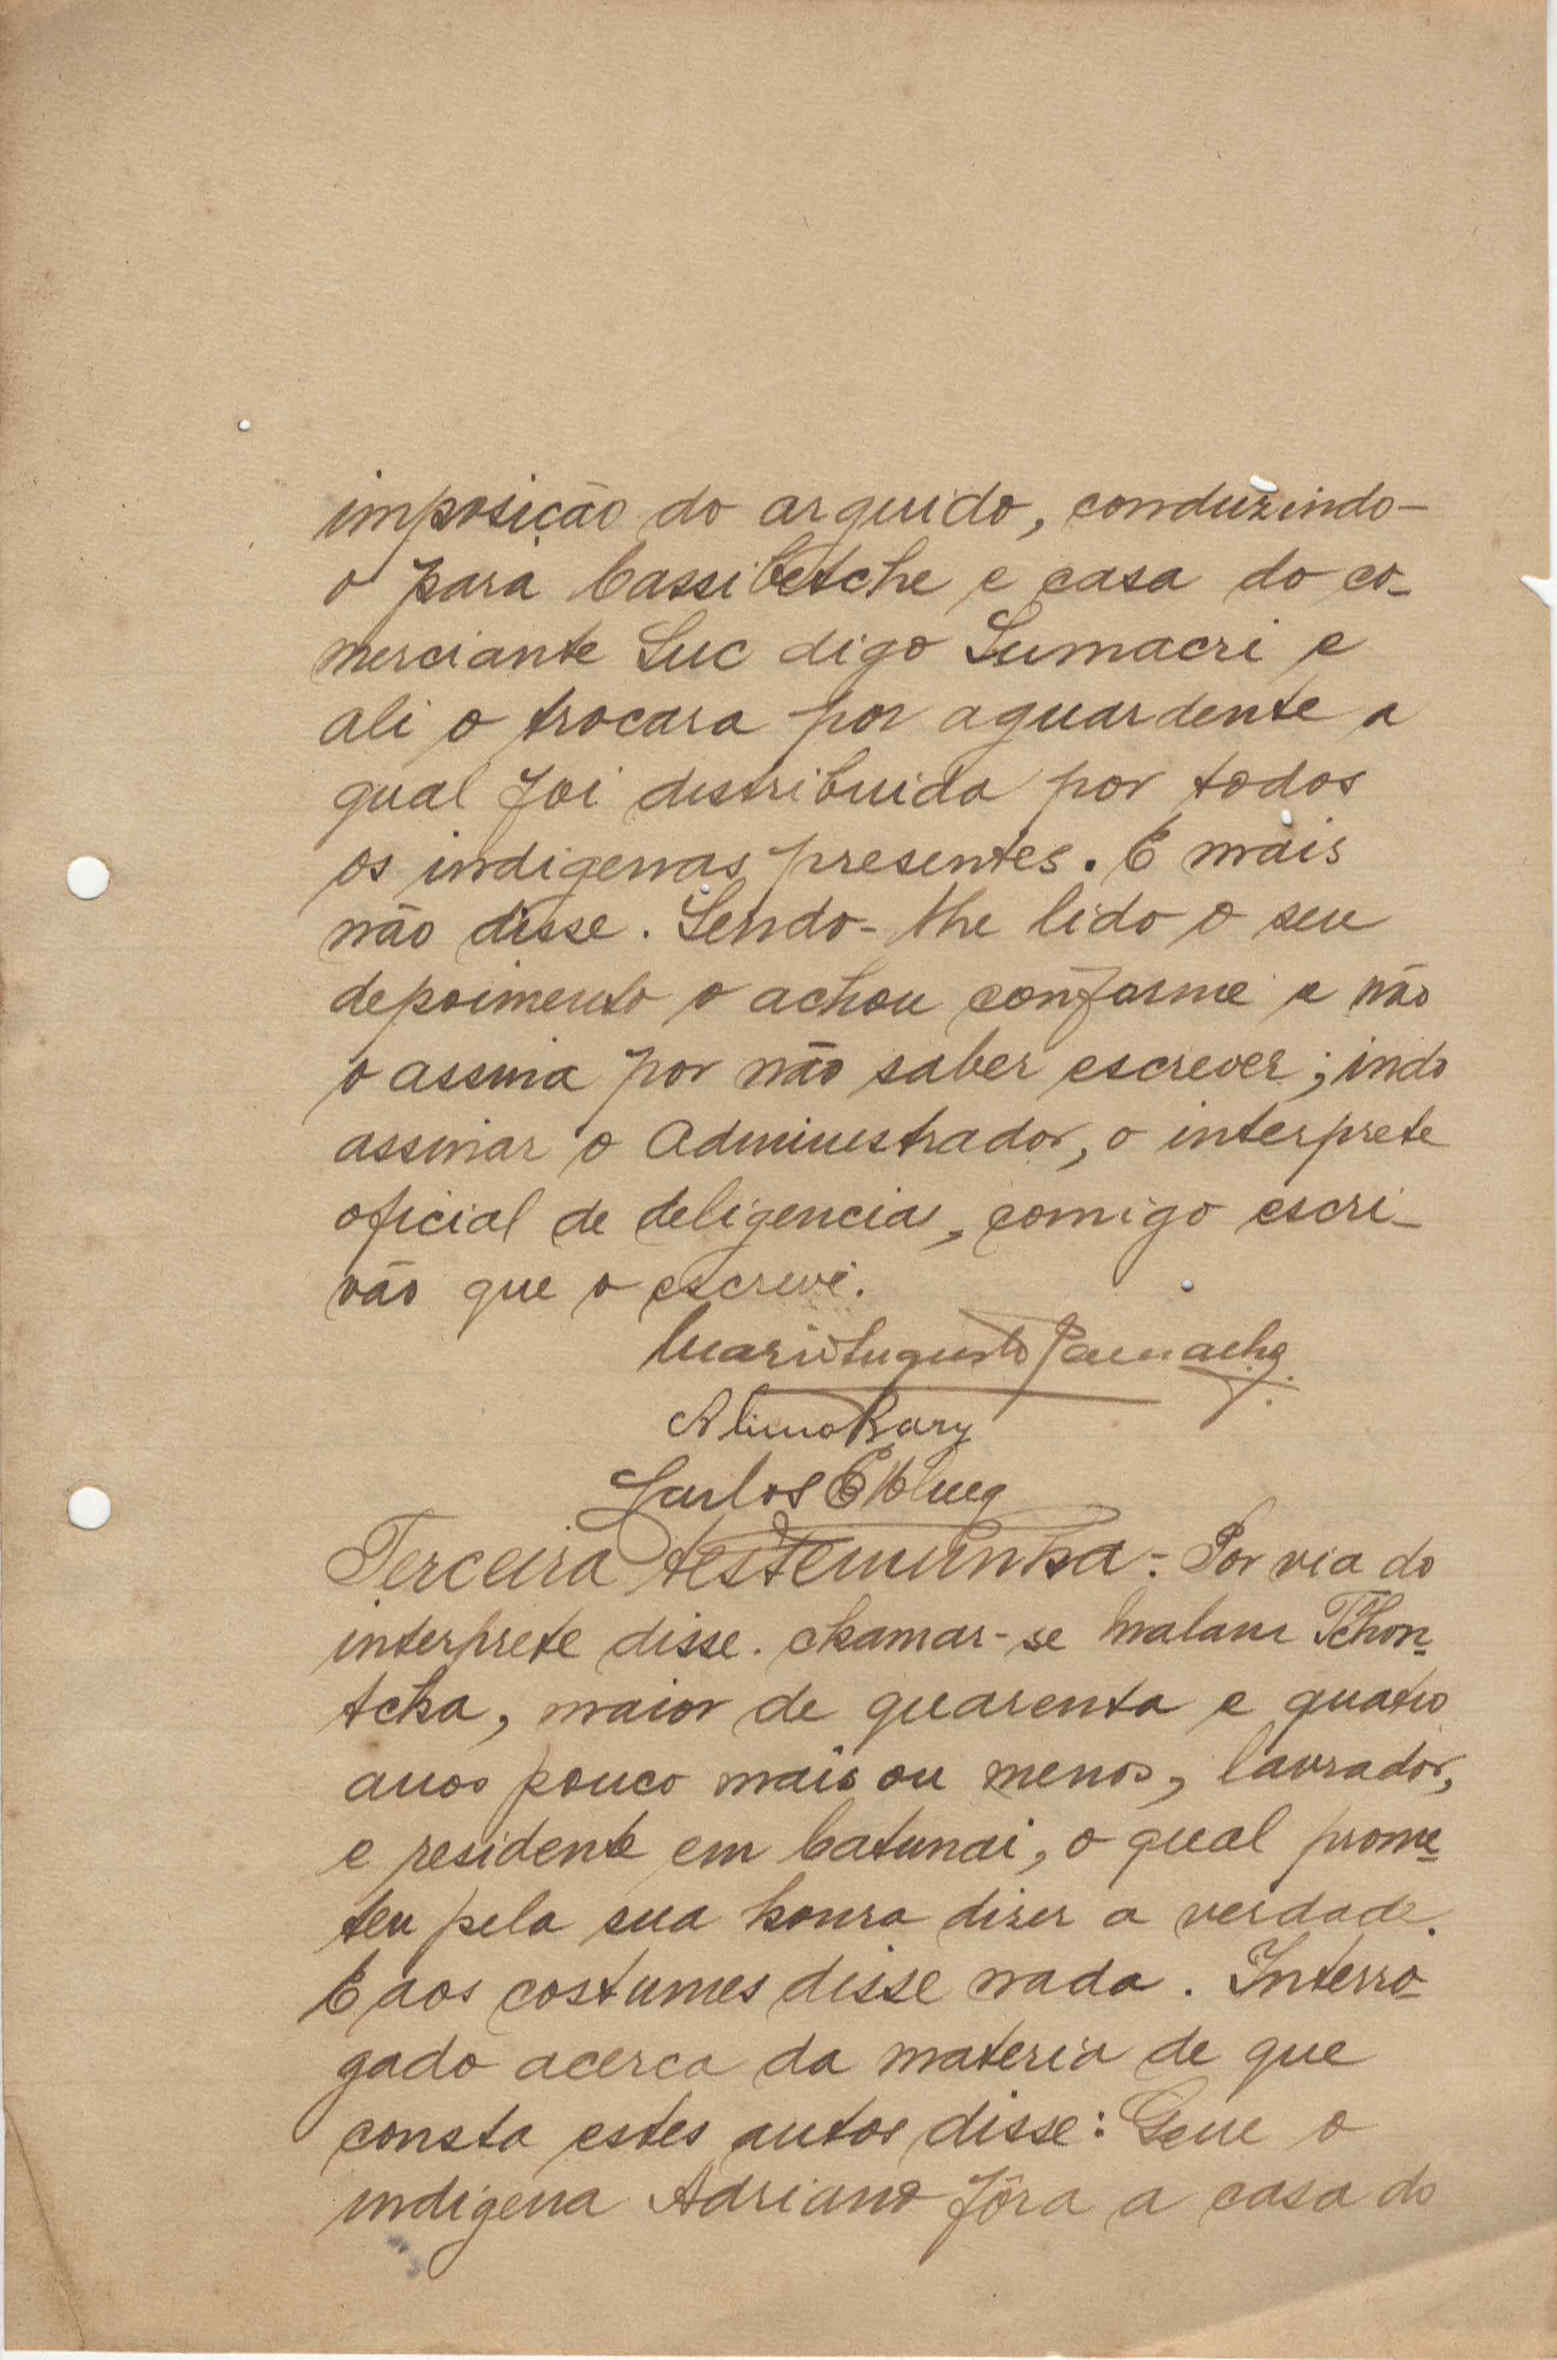 imposição do arguido, conduzindo-
o para Cassibetche e casa do co-
merciante Luc digo Lumacri e
ali o trocara por aguardente a
qual foi distribuida por todos
os indigenas presentes. E mais
não disse. Sendo-lhe lido o seu
depoimento o achou conforme e não
o assina por não saber escrever; indo
assinar o Administrador, o interprete
oficial de deligencias, comigo escri-
vão que o escrevi.
Mario Augusto
Carlos
Terceira testemunha - Por via do
interprete disse. chamar-se Malam Tchon-
tcha, maior de quarenta e quatro
anos pouco mais ou menos, lavrador,
e residente em Catunai, o qual prome-
teu pela sua honra dizer a verdade.
E aos costumes disse nada. Interro-
gado acerca da materia de que
consta estes autos disse: Que o
indigena Adriano fôra a casa do